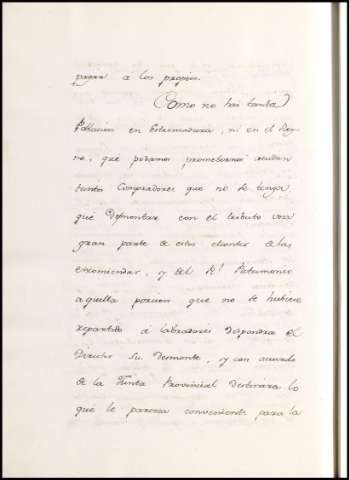 pagan á los propios.
Como no hai tanta
Poblacion en Extremadura, ni en el Rey-
no, que podamos prometernos acudan
tantos Compradores que no se tenga
que Desmontar con el tributo una
gran parte de estos
encomiendas, y del Rl Patrimonio
aquella porcion que no se hubiere
repartido á labradores dispondra el
Director su Desmonte, y con acuerdo
de la Junta Provincial destinara lo
que le paresca conveniente para la